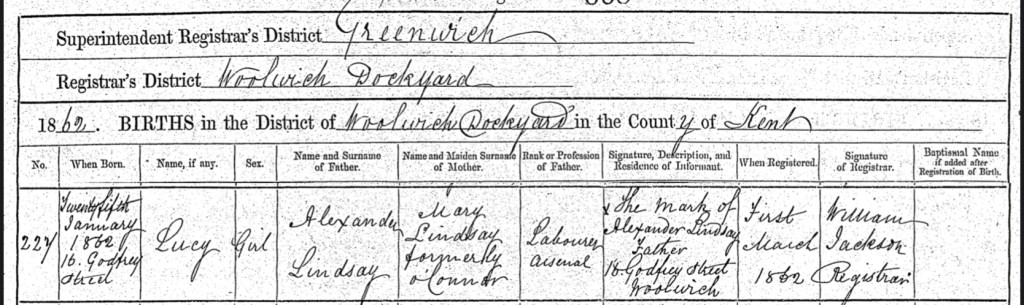 Superintendent Registrar's District Greenwich
Registrar's District Woolwich Dockyard
1862. BIRTHS in the District of Woolwich Dockyard in the County of Kent
No. When Born. Name, if any. Sex. Name and Surname of Father. Name and Maiden Surname of Mother. Rank or Profession of Father. Signature, Description, and Residence of Informant. When Registered. Signature of Registrar. Baptismal Name if added after Registration of Birth.
227
Twenty fifth
January
1862
16. Godfrey
Street
Lucy
Girl
Alexander
Lindsay
Mary
Lindsay
formerly
O'Connor
Labourer
Arsenal
x The Mark of
Alexander Lindsay
Father
16 Godfrey Street
Woolwich
First
March
1862
William
Jackson
Registrar